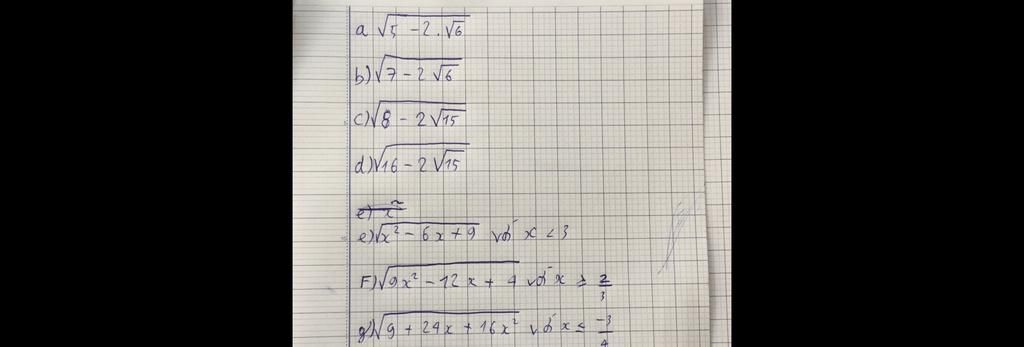 a √(5 - 2.√6)
b) √(7 - 2√6)
c) √(8 - 2√15)
d) √(16 - 2√15)
e) x²
e) √(x² - 6x + 9) với x < 3
F) √(9x² - 12x + 4) với x ≥ 2/3
g) √(9 + 24x + 16x²) với x ≤ -3/4